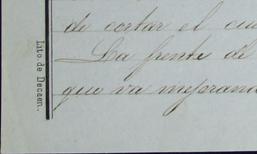 de cortar el cu
La frente de
que va mejorand
Lito de Decaen.